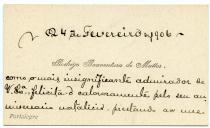 24 de Fevereiro de 1906
Rodrigo Boaventura de Mattos
como o mais insignificante admirador de
V. Exª. felicita-o calorosamente pelo seu an
niversario natalicio, prestando ao me
Portalegre